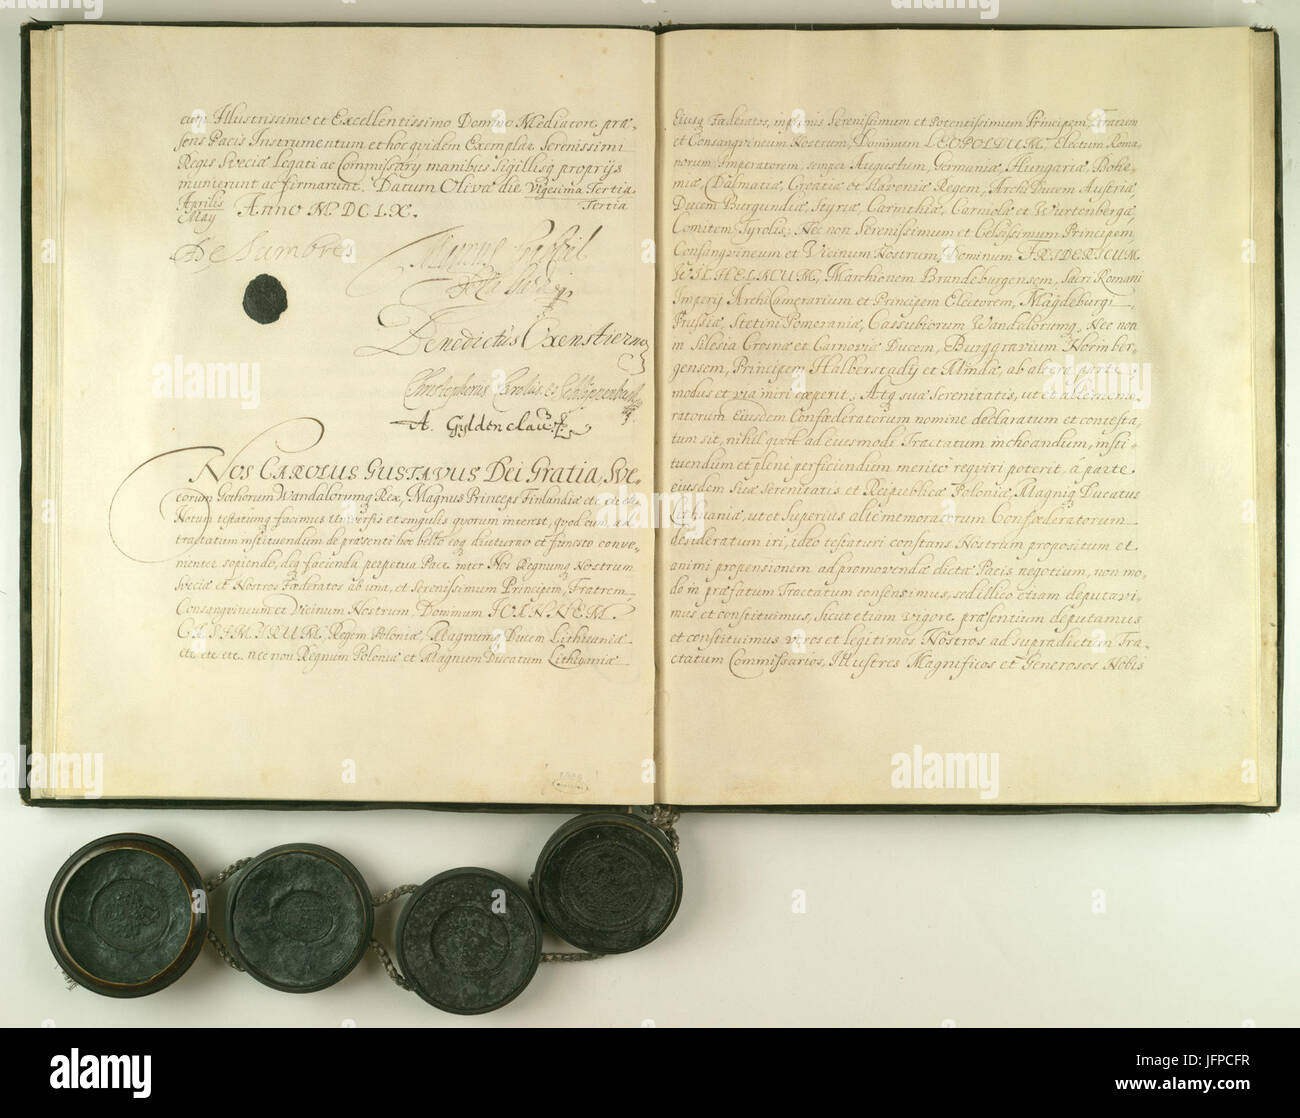 cum Illustrissimo et Excellentissimo Domino Mediatore præ-
sens Pacis Instrumentum et hoc quidem Exemplar Serenissimi
Regis Sveciæ Legati ac Commissarij manibus Sigillisq proprijs
munierunt ac firmarunt. Datum Olivæ die Vigesima Tertia
Tertia
Aprilis
May Anno MDCLX.
A de Lumbres
Benedictus Oxenstierna
Christopherus Carolus Schlippenbach
A. Gyldenclau
NOS CAROLUS GUSTAVUS Dei Gratia, Sve-
corum Gothorum Wandalorumq Rex, Magnus Princeps Finlandiæ etc
Notum testatumq facimus Universis et singulis quorum interest, quod cum ad
tractatum instituendum de præsenti hoc bello eoq diuturno et funesto conve-
nienter sopiendo, deq facienda perpetua Pace inter Nos Regnumq Nostrum
Sveciæ et Nostros Fœderatos ab una, et Serenissimum Principem, Fratrem
Consangvineum et Vicinum Nostrum Dominum JOANNEM
CASIMIRUM, Regem Poloniæ, Magnumq Ducem Lithvaniæ
etc etc etc. nec non Regnum Poloniæ et Magnum Ducatum Lithvaniæ
Eiusq Fæderatos, inprimis Serenissimum et Potentissimum Principem, Fratrem
et Consangvineum Nostrum, Dominum LEOPOLDUM, Electum Roma-
norum Imperatorem, semper Augustum, Germaniæ, Hungariæ, Bohe-
miæ, Dalmatiæ, Croatiæ et Slavoniæ Regem, ArchiDucem Austriæ,
Ducem Burgundiæ, Styriæ, Carinthiæ, Carniolæ et Wurtenbergæ,
Comitem Tyrolis; Nec non Serenissimum et Celsissimum Principem
Consangvineum et Vicinum Nostrum, Dominum FRIDERICUM
WILHELMUM, Marchionem Brandeburgensem, Sacri Romani
Imperij ArchiCamerarium et Principem Electorem, Magdeburgi
Prussiæ, Stetini Pomeraniæ, Cassubiorum Wandalorumq, Nec non
in Silesia Crosnæ et Carnoviæ Ducem, Burggravium Norinber-
gensem, Principem Halberstadij et Mindæ, ab altera parte
modus et via iniri cæperit; Atq sua Serenitatis, ut et allememo-
ratorum Eiusdem Confœderatorum nomine declaratum et contesta-
tum sit, nihil quod ad eiusmodi Tractatum inchoandum, insti-
tuendum et plene perficiundum merito reqviri poterit, à parte
eiusdem Suæ Serenitatis et Reipublicæ Poloniæ, Magniq Ducatus
Lithvaniæ, ut et Superius alie memoratorum Confœderatorum
desideratum iri, ideo testaturi constans Nostrum propositum et
animi propensionem ad promovendæ dictæ Pacis negotium, non mo-
do in præfatum Tractatum consensimus, sed illico etiam deputavi-
mus et constituimus, sicut etiam vigore præsentium deputamus
et constituimus veros et legitimos Nostros ad supradictum Tra-
ctatum Commissarios, Illustres Magnificos et Generosos Nobis
alamy
Image ID: JFPCFR
www.alamy.com